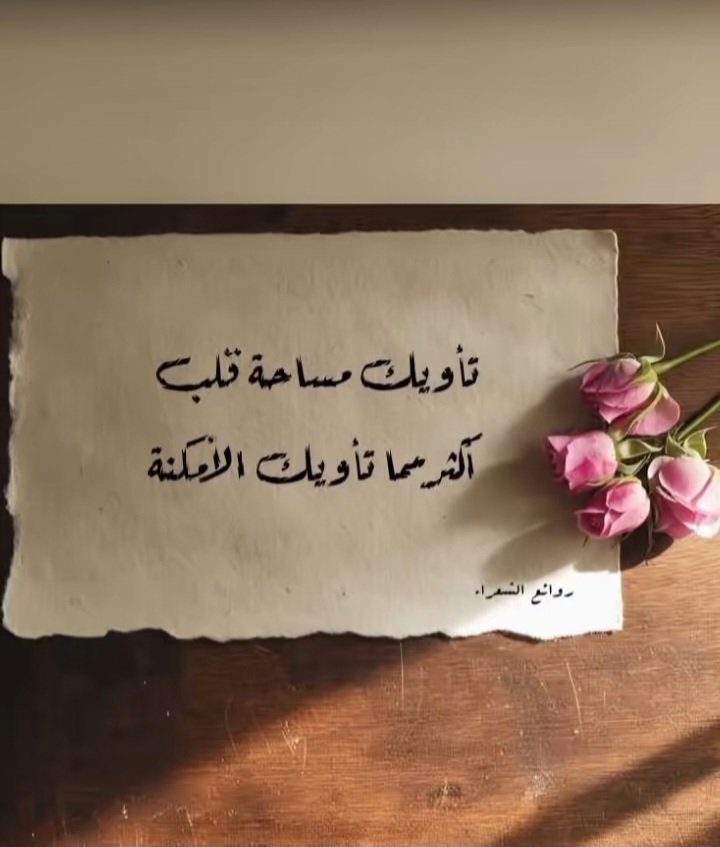 تأويك مساحة قلب
أكثر مما تأويك الأمكنة
روائع الشعراء